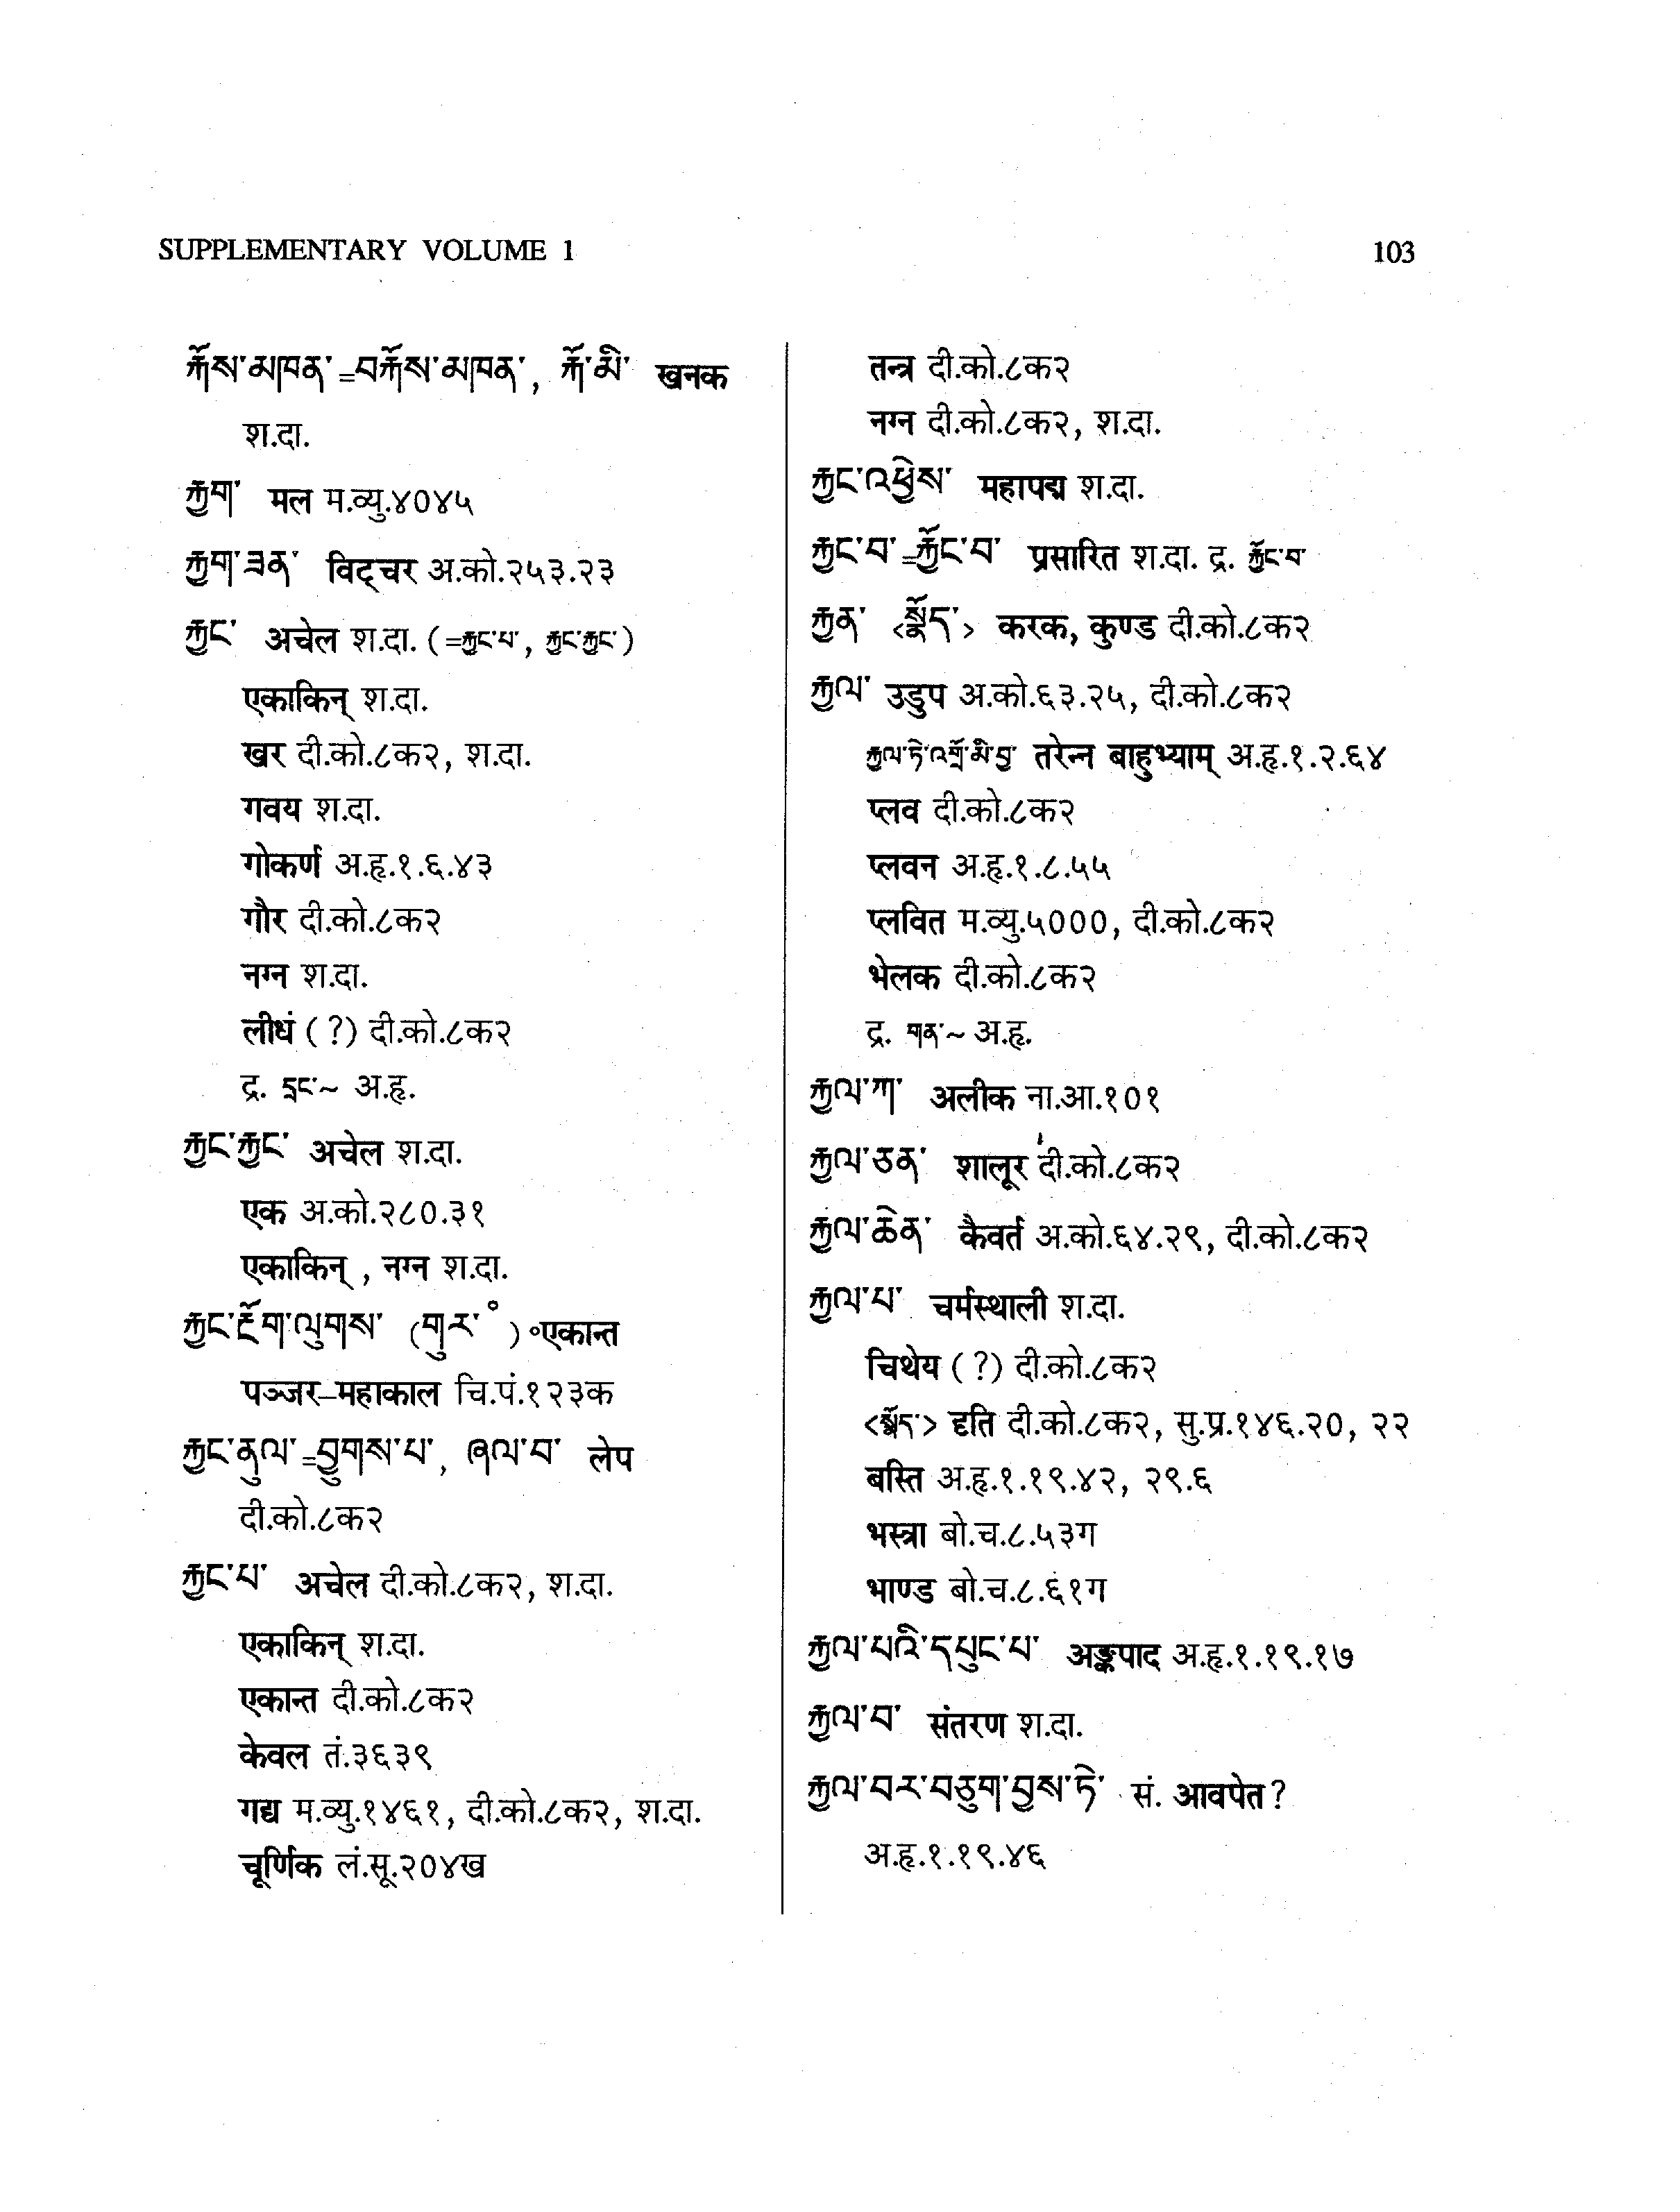 SUPPLEMENTARY VOLUME 1
103
རྐོས་མཁན་=བརྐོས་མཁན་, རྐོ་མི་ खनक
श.दा.
རྐྱག་ मल म.व्यु.४०४५
རྐྱག་ཟན་ विट्चर अ.को.२५३.२३
རྐྱང་ अचेल श.दा. (=རྐྱང་པ་, རྐྱང་རྐྱང་)
एकाकिन् श.दा.
खर दी.को.८क२, श.दा.
गवय श.दा.
गोकर्ण अ.हृ.१.६.४३
गौर दी.को.८क२
नग्न श.दा.
लीधं (?) दी.को.८क२
द्र. དྲང་~ अ.हृ.
རྐྱང་རྐྱང་ अचेल श.दा.
एक अ.को.२८०.३१
एकाकिन् , नग्न श.दा.
རྐྱང་རྫོག་ལུགས་ (གུར་°) °एकान्त
पञ्जर–महाकाल चि.पं.१२३क
རྐྱང་ནུལ་=བྱུགས་པ་, ཞལ་བ་ लेप
दी.को.८क२
རྐྱང་པ་ अचेल दी.को.८क२, श.दा.
एकाकिन् श.दा.
एकान्त दी.को.८क२
केवल तं.३६३९
गद्य म.व्यु.१४६१, दी.को.८क२, श.दा.
चूर्णिक लं.सू.२०४ख
तन्त्र दी.को.८क२
नग्न दी.को.८क२, श.दा.
རྐྱང་འཕྱེས་ महापद्म श.दा.
རྐྱང་བ་=རྐྱོང་བ་ प्रसारित श.दा. द्र. རྐྱོང་བ་
རྐྱན་ <སྣོད་> करक, कुण्ड दी.को.८क२
རྐྱལ་ उडुप अ.को.६३.२५, दी.को.८क२
རྐྱལ་ཏེ་འགྲོ་མི་བྱ་ तरेन्न बाहुभ्याम् अ.हृ.१.२.६४
प्लव दी.को.८क२
प्लवन अ.हृ.१.८.५५
प्लवित म.व्यु.५०००, दी.को.८क२
भेलक दी.को.८क२
द्र. གན་~ अ.हृ.
རྐྱལ་ཀ་ अलीक ना.आ.१०१
རྐྱལ་ཅན་ शालूर दी.को.८क२
རྐྱལ་ཆེན་ कैवर्त अ.को.६४.२९, दी.को.८क२
རྐྱལ་པ་ चर्मस्थाली श.दा.
चिथेय (?) दी.को.८क२
<སྣོད་> दृति दी.को.८क२, सु.प्र.१४६.२०, २२
बस्ति अ.हृ.१.१९.४२, २९.६
भस्त्रा बो.च.८.५३ग
भाण्ड बो.च.८.६१ग
རྐྱལ་པའི་དཔུང་པ་ अङ्कपाद अ.हृ.१.१९.१७
རྐྱལ་བ་ संतरण श.दा.
རྐྱལ་བར་བཅུག་བྱས་ཏེ་ सं. आवपेत?
अ.हृ.१.१९.४६